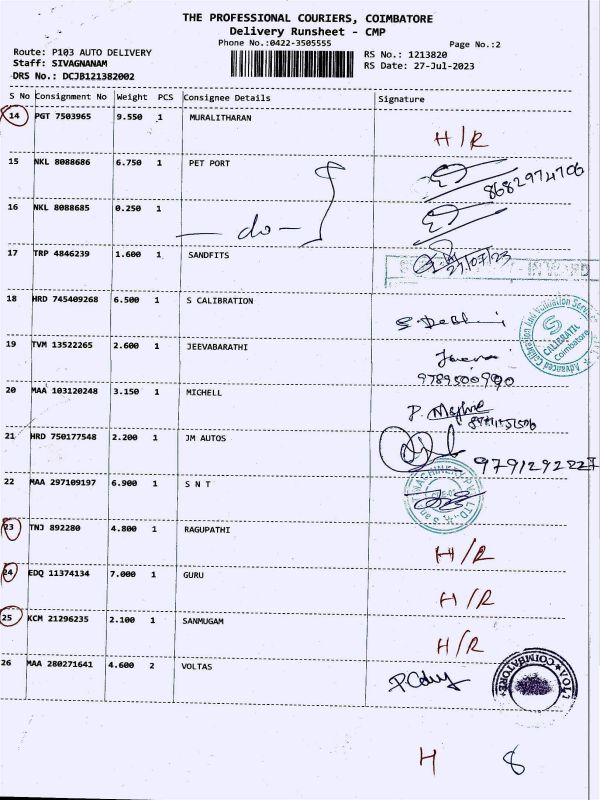 THE PROFESSIONAL COURIERS, COIMBATORE
Delivery Runsheet - CMP
Phone No.:0422-3505555 Page No.:2
Route: P103 AUTO DELIVERY RS No.: 1213820
Staff: SIVAGNANAM RS Date: 27-Jul-2023
DRS No.: DCJB121382002
S No Consignment No Weight PCS Consignee Details Signature
14 PGT 7503965 9.550 1 MURALITHARAN H/R
15 NKL 8088686 6.750 1 PET PORT 8682974706
16 NKL 8088685 0.250 1 - do -
17 TRP 4846239 1.600 1 SANDFITS 27/07/23
18 HRD 745409268 6.500 1 S CALIBRATION
19 TVM 13522265 2.600 1 JEEVABARATHI
9789500990
20 MAA 103120248 3.150 1 MICHELL
21 HRD 750177548 2.200 1 JM AUTOS 9791292227
22 MAA 297109197 6.900 1 S N T
23 TNJ 892280 4.800 1 RAGUPATHI H/R
24 EDQ 11374134 7.000 1 GURU H/R
25 KCM 21296235 2.100 1 SANMUGAM H/R
26 MAA 280271641 4.600 2 VOLTAS
COIMBATORE
H 8